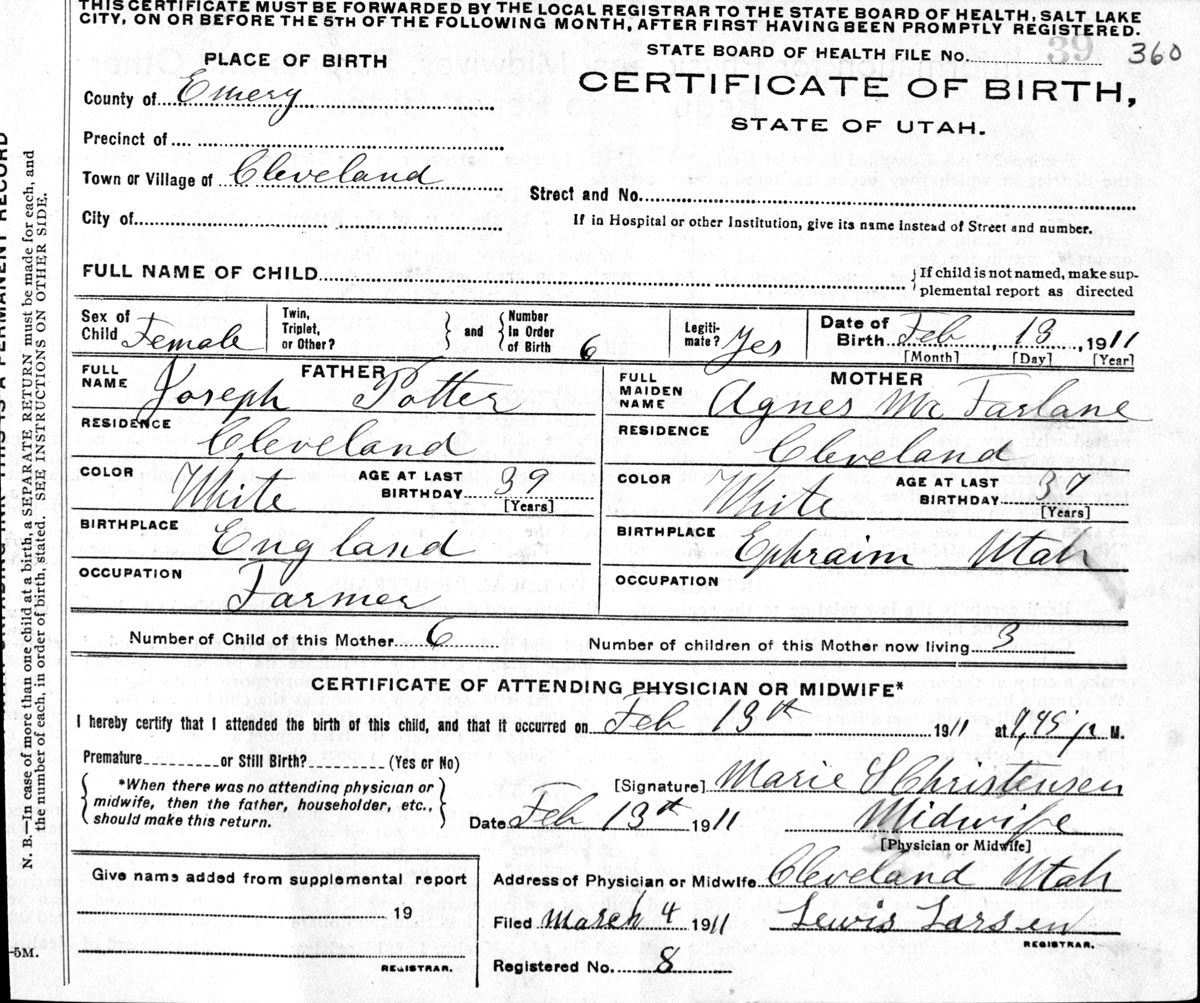 THIS CERTIFICATE MUST BE FORWARDED BY THE LOCAL REGISTRAR TO THE STATE BOARD OF HEALTH, SALT LAKE
CITY, ON OR BEFORE THE 5TH OF THE FOLLOWING MONTH, AFTER FIRST HAVING BEEN PROMPTLY REGISTERED.
STATE BOARD OF HEALTH FILE No. 39 360
PLACE OF BIRTH
CERTIFICATE OF BIRTH,
STATE OF UTAH.
County of Emery
Precinct of
Town or Village of Cleveland
Street and No.
City of
If in Hospital or other Institution, give its name instead of Street and number.
FULL NAME OF CHILD
If child is not named, make sup-
plemental report as directed
Sex of Child Female
Twin, Triplet, or Other?
and
Number in Order of Birth 6
Legiti-mate? Yes
Date of Birth Feb 13, 1911
[Month] [Day] [Year]
FATHER
FULL NAME Joseph Potter
RESIDENCE Cleveland
COLOR White
AGE AT LAST BIRTHDAY 39
[Years]
BIRTHPLACE England
OCCUPATION Farmer
MOTHER
FULL MAIDEN NAME Agnes McFarlane
RESIDENCE Cleveland
COLOR White
AGE AT LAST BIRTHDAY 37
[Years]
BIRTHPLACE Ephraim Utah
OCCUPATION
Number of Child of this Mother 6 Number of children of this Mother now living 3
CERTIFICATE OF ATTENDING PHYSICIAN OR MIDWIFE*
I hereby certify that I attended the birth of this child, and that it occurred on Feb 13th 1911 at 7,45 p M.
Premature or Still Birth? (Yes or No)
*When there was no attending physician or
midwife, then the father, householder, etc.,
should make this return.
[Signature] Marie S Christensen
Date Feb 13th 1911 Midwife
[Physician or Midwife]
Give name added from supplemental report
19
REGISTRAR.
Address of Physician or Midwife Cleveland Utah
Filed March 4 1911 Lewis Larsen
REGISTRAR.
Registered No. 8
-5M.
THIS IS A PERMANENT RECORD
N. B.—In case of more than one child at a birth, a SEPARATE RETURN must be made for each, and
the number of each, in order of birth, stated. SEE INSTRUCTIONS ON OTHER SIDE.